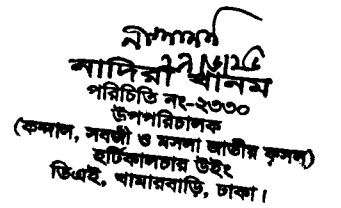 নাদিরা খানম
পরিচিতি নং-২৩৩০
উপপরিচালক
(কন্দাল, সবজী ও মসলা জাতীয় ফসল)
হর্টিকালচার উইং
ডিএই, খামারবাড়ি, ঢাকা।